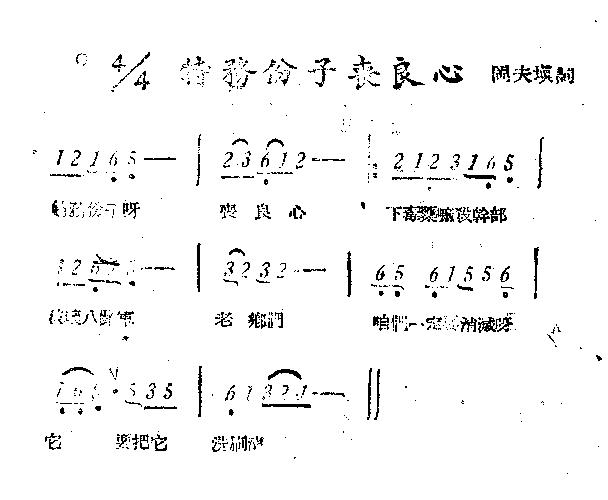 4/4 特務份子喪良心 岡夫填詞
1 2 1 6 5 — | 2 3 6 1 2 — | 2 1 2 3 1 6 5 |
特務份子呀 喪良心 下毒藥 幹部
1 2 6 5 — | 3 2 3 2 — | 6 5 6 1 5 5 6 |
八路軍 老鄉們 咱們一定要消滅呀
1 6 5 5 3 5 | 6 1 3 2 1 — ‖
它 要把它